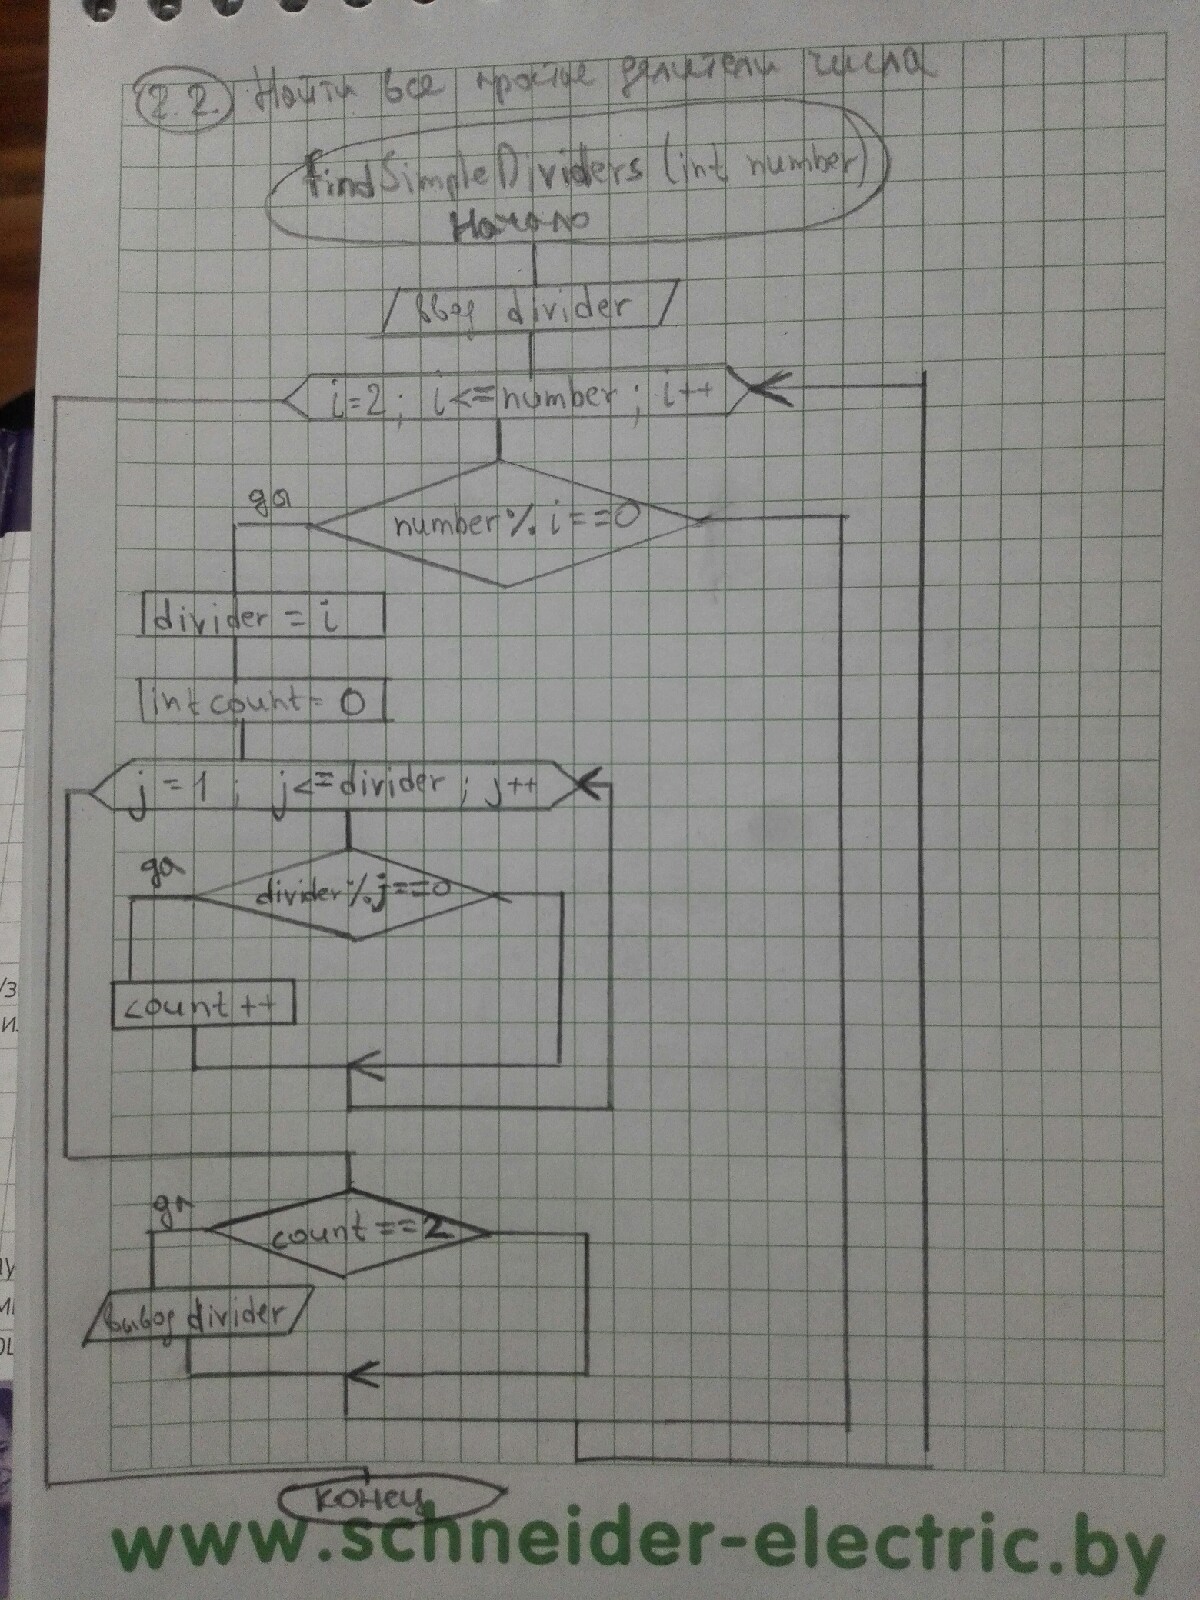 2.2. Найти все простые делители числа
findSimpleDividers (int number)
Начало
ввод divider
i=2; i<=number; i++
да
number % i==0
divider = i
int count = 0
j=1; j<=divider; j++
да
divider % j==0
count ++
да
count ==2
вывод divider
конец
www.schneider-electric.by